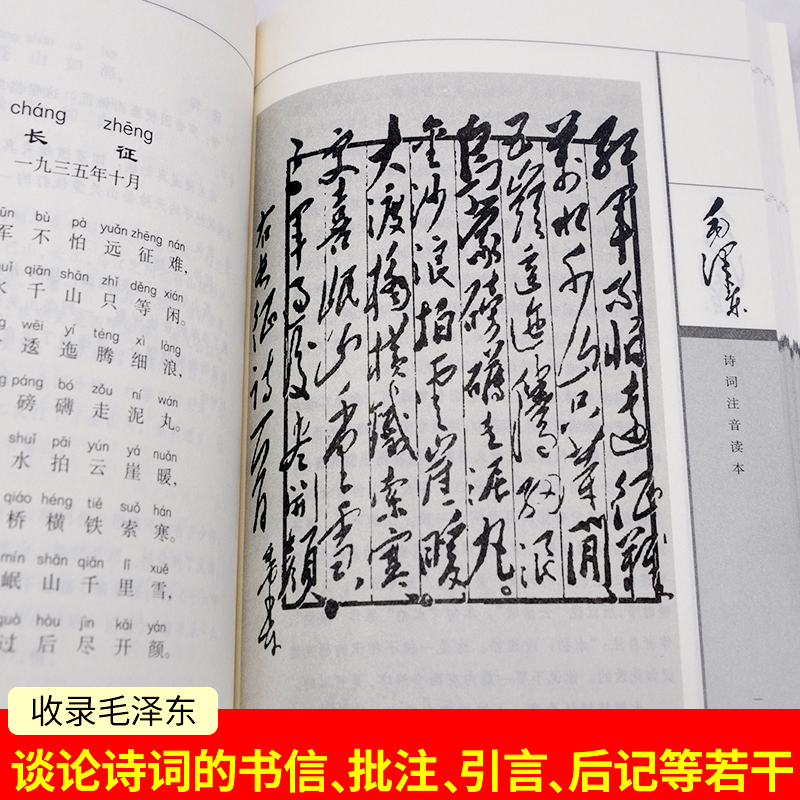 cháng zhēng
长征
一九三五年十月
ūn bù pà yuǎn zhēng nán
军不怕远征难,
uǐ qiān shān zhǐ děng xián
水千山只等闲。
g wēi yí téng xì làng
逶迤腾细浪,
g páng bó zǒu ní wán
磅礴走泥丸。
shuǐ pāi yún yá nuǎn
水拍云崖暖,
qiáo héng tiě suǒ hán
桥横铁索寒。
mín shān qiān lǐ xuě
岷山千里雪,
guò hòu jìn kāi yán
过后尽开颜。
红军不怕远征难
万水千山只等闲
五嶺逶迤腾细浪
乌蒙磅礴走泥丸。
金沙浪拍云崖暖
大渡橋横鐵索寒
更喜岷山千里雪
三军过后尽开颜
右长征诗一首
毛泽东
毛泽东
诗词注音读本
收录毛泽东
谈论诗词的书信、批注、引言、后记等若干